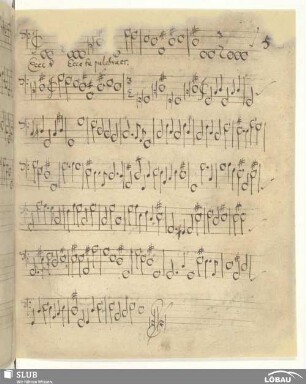 5
Ecce tu pulchra es.
SLUB
Wir führen Wissen.
LÖBAU